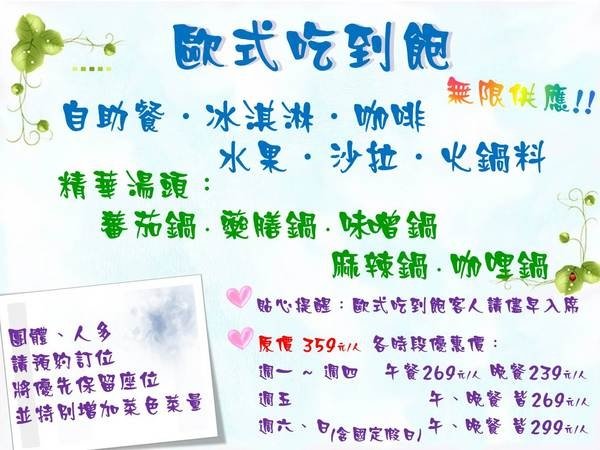 歐式吃到飽
無限供應!!
自助餐・冰淇淋・咖啡
水果・沙拉・火鍋料
精華湯頭：
蕃茄鍋．藥膳鍋．味噌鍋
麻辣鍋．咖哩鍋
貼心提醒：歐式吃到飽客人請儘早入席
原價 359元/人 各時段優惠價：
週一 ~ 週四 午餐269元/人 晚餐239元/人
週五 午、晚餐 皆269元/人
週六、日(含國定假日) 午、晚餐 皆299元/人
團體、人多
請預約訂位
將優先保留座位
並特別增加菜色菜量